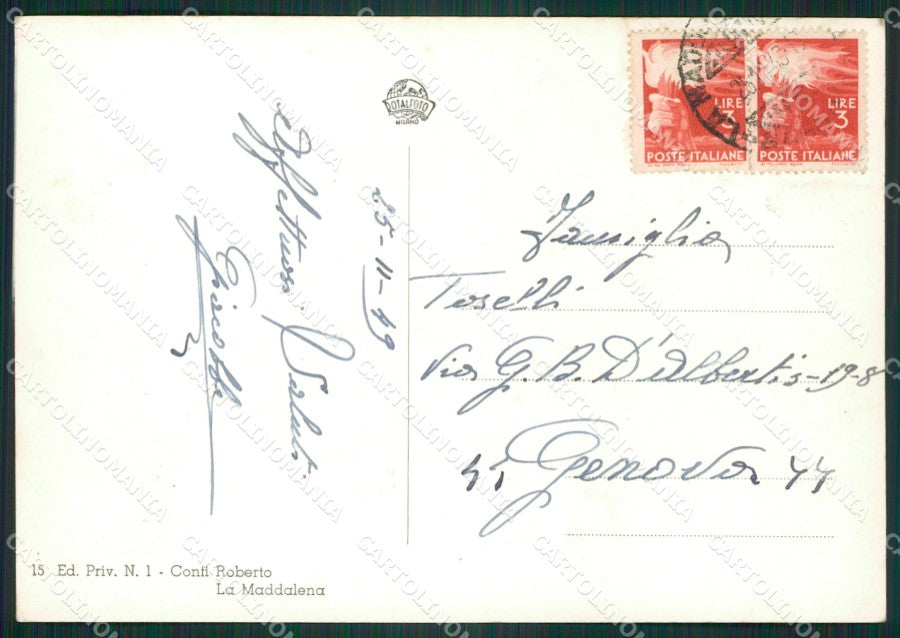 ROTALFOTO
MILANO
LA MADD
LIRE
3
POSTE ITALIANE
LIRE
3
POSTE ITALIANE
25-11-49
Affettuosi Saluti
Giacobbe
Famiglia
Toselli
Via G. B. D'Albertis-19-8
Genova
15 Ed. Priv. N. 1 - Conti Roberto
La Maddalena
CARTOLINOMANIA